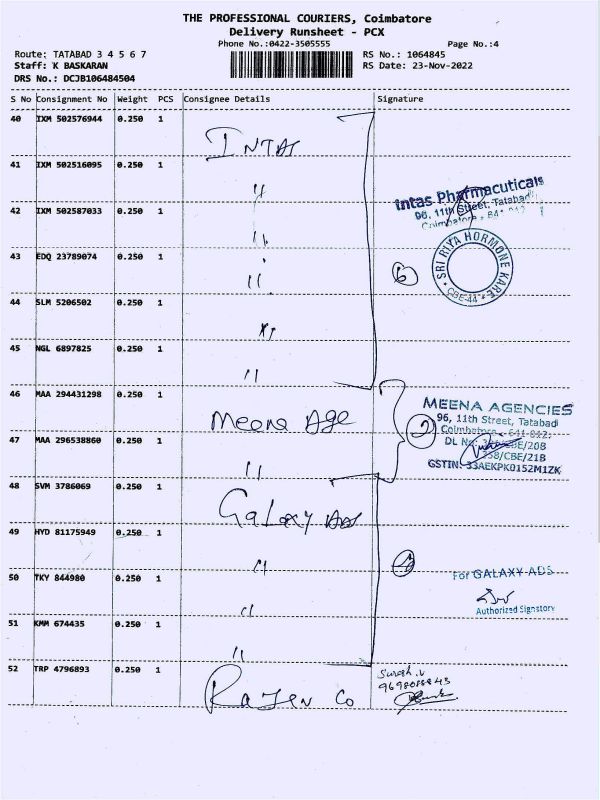 THE PROFESSIONAL COURIERS, Coimbatore
Delivery Runsheet - PCX
Phone No.:0422-3505555
Page No.:4
Route: TATABAD 3 4 5 6 7
RS No.: 1064845
Staff: K BASKARAN
RS Date: 23-Nov-2022
DRS No.: DCJB106484504
S No Consignment No Weight PCS Consignee Details Signature
40 IXM 502576944 0.250 1
INTAS
41 IXM 502516095 0.250 1
"
Intas Pharmacuticals
96, 11th Street, Tatabad
Coimbatore - 641 012
42 IXM 502587033 0.250 1
"
SRI RIYA HORMONE KARE
CBE-44
43 EDQ 23789074 0.250 1
"
6
44 SLM 5206502 0.250 1
"
45 NGL 6897825 0.250 1
"
46 MAA 294431298 0.250 1
Meena Age
2
MEENA AGENCIES
96, 11th Street, Tatabad
Coimbatore - 641 012.
DL No: /CBE/20B
358/CBE/21B
GSTIN: 33AEKPK0152M1ZK
47 MAA 296538860 0.250 1
"
48 SVM 3786069 0.250 1
Galaxy Ads
49 HYD 81175949 0.250 1
"
4
50 TKY 844980 0.250 1
"
For GALAXY ADS
Authorized Signatory
51 KMM 674435 0.250 1
"
52 TRP 4796893 0.250 1
Rajen Co
Suresh.V